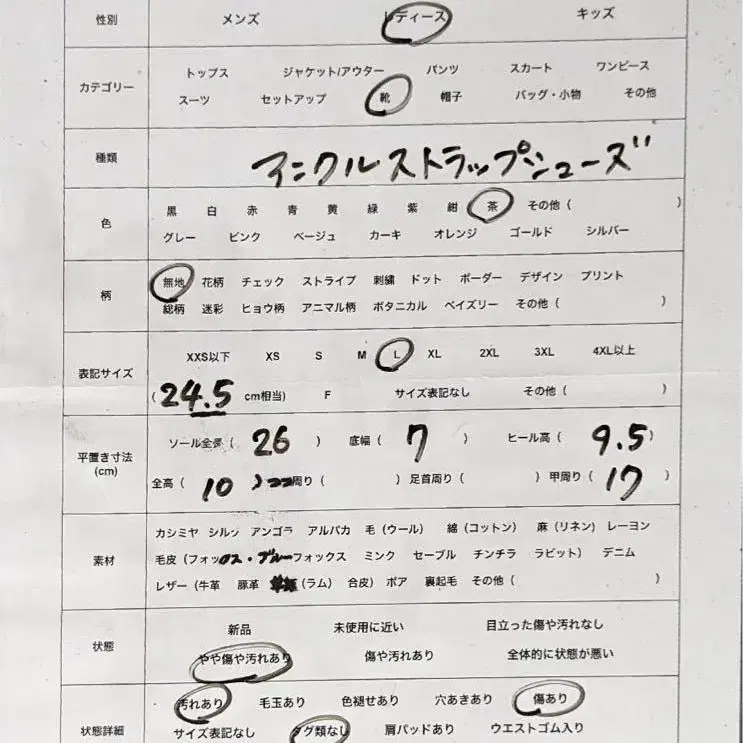 性別 メンズ レディース キッズ
トップス ジャケット/アウター パンツ スカート ワンピース
カテゴリー
スーツ セットアップ 靴 帽子 バッグ・小物 その他
種類 アンクルストラップシューズ
黒 白 赤 青 黄 緑 紫 紺 茶 その他 ( )
色
グレー ピンク ベージュ カーキ オレンジ ゴールド シルバー
無地 花柄 チェック ストライプ 刺繍 ドット ボーダー デザイン プリント
柄
総柄 迷彩 ヒョウ柄 アニマル柄 ボタニカル ペイズリー その他 ( )
XXS以下 XS S M L XL 2XL 3XL 4XL以上
表記サイズ
( 24.5 cm相当) F サイズ表記なし その他 ( )
ソール全長 ( 26 ) 底幅 ( 7 ) ヒール高 ( 9.5 )
平置き寸法
(cm)
全高 ( 10 ) 周り ( ) 足首周り ( ) 甲周り ( 17 )
カシミヤ シルク アンゴラ アルパカ 毛 (ウール) 綿 (コットン) 麻 (リネン) レーヨン
素材 毛皮 (フォックス・ブルーフォックス ミンク セーブル チンチラ ラビット) デニム
レザー (牛革 豚革 (ラム) 合皮) ボア 裏起毛 その他 ( )
新品 未使用に近い 目立った傷や汚れなし
状態
やや傷や汚れあり 傷や汚れあり 全体的に状態が悪い
汚れあり 毛玉あり 色褪せあり 穴あきあり 傷あり
状態詳細 サイズ表記なし タグ類なし 肩パッドあり ウエストゴム入り